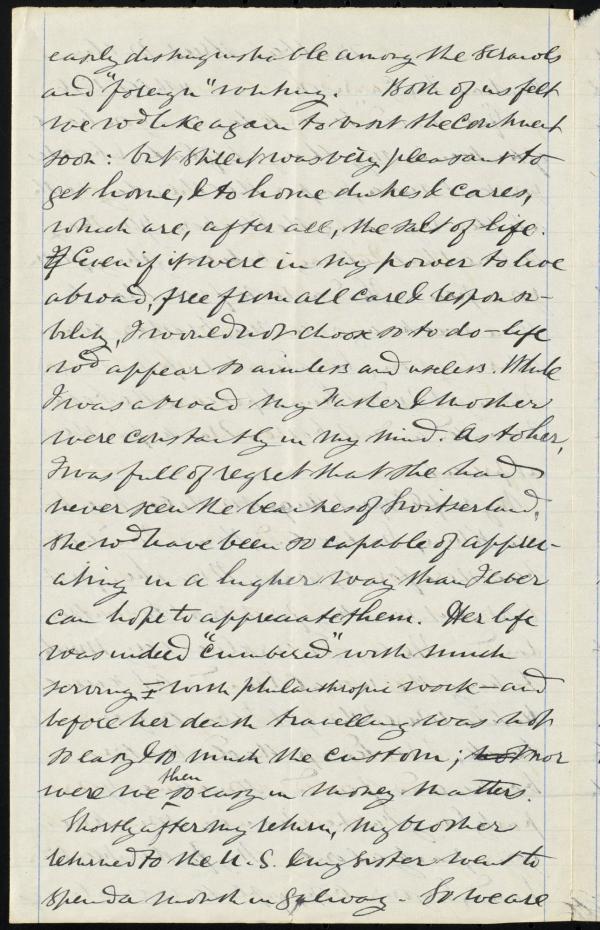 easily distinguishable among the scrawls
and "foreign" writing. Both of us felt
we wd like again to visit the Continent
soon: but still it was very pleasant to
get home, & to home duties & cares,
which are, after all, the salt of life.
Even if it were in my power to live
abroad, free from all care & responsi-
bility, I would not choose so to do – life
wd appear so aimless and useless. While
I was abroad my Father & Mother
were constantly in my mind. As to her,
I was full of regret that she had
never seen the beauties of Switzerland,
she wd have been so capable of appreci-
ating in a higher way than I ever
can hope to appreciate them. Her life
was indeed "cumbered" with much
serving & with philanthropic work – and
before her death travelling was not
so easy & so much the custom; not nor
were we then so easy in money matters.
Shortly after my return, my brother
returned to the U.S. & my sister went to
spend a month in Galway. So we are